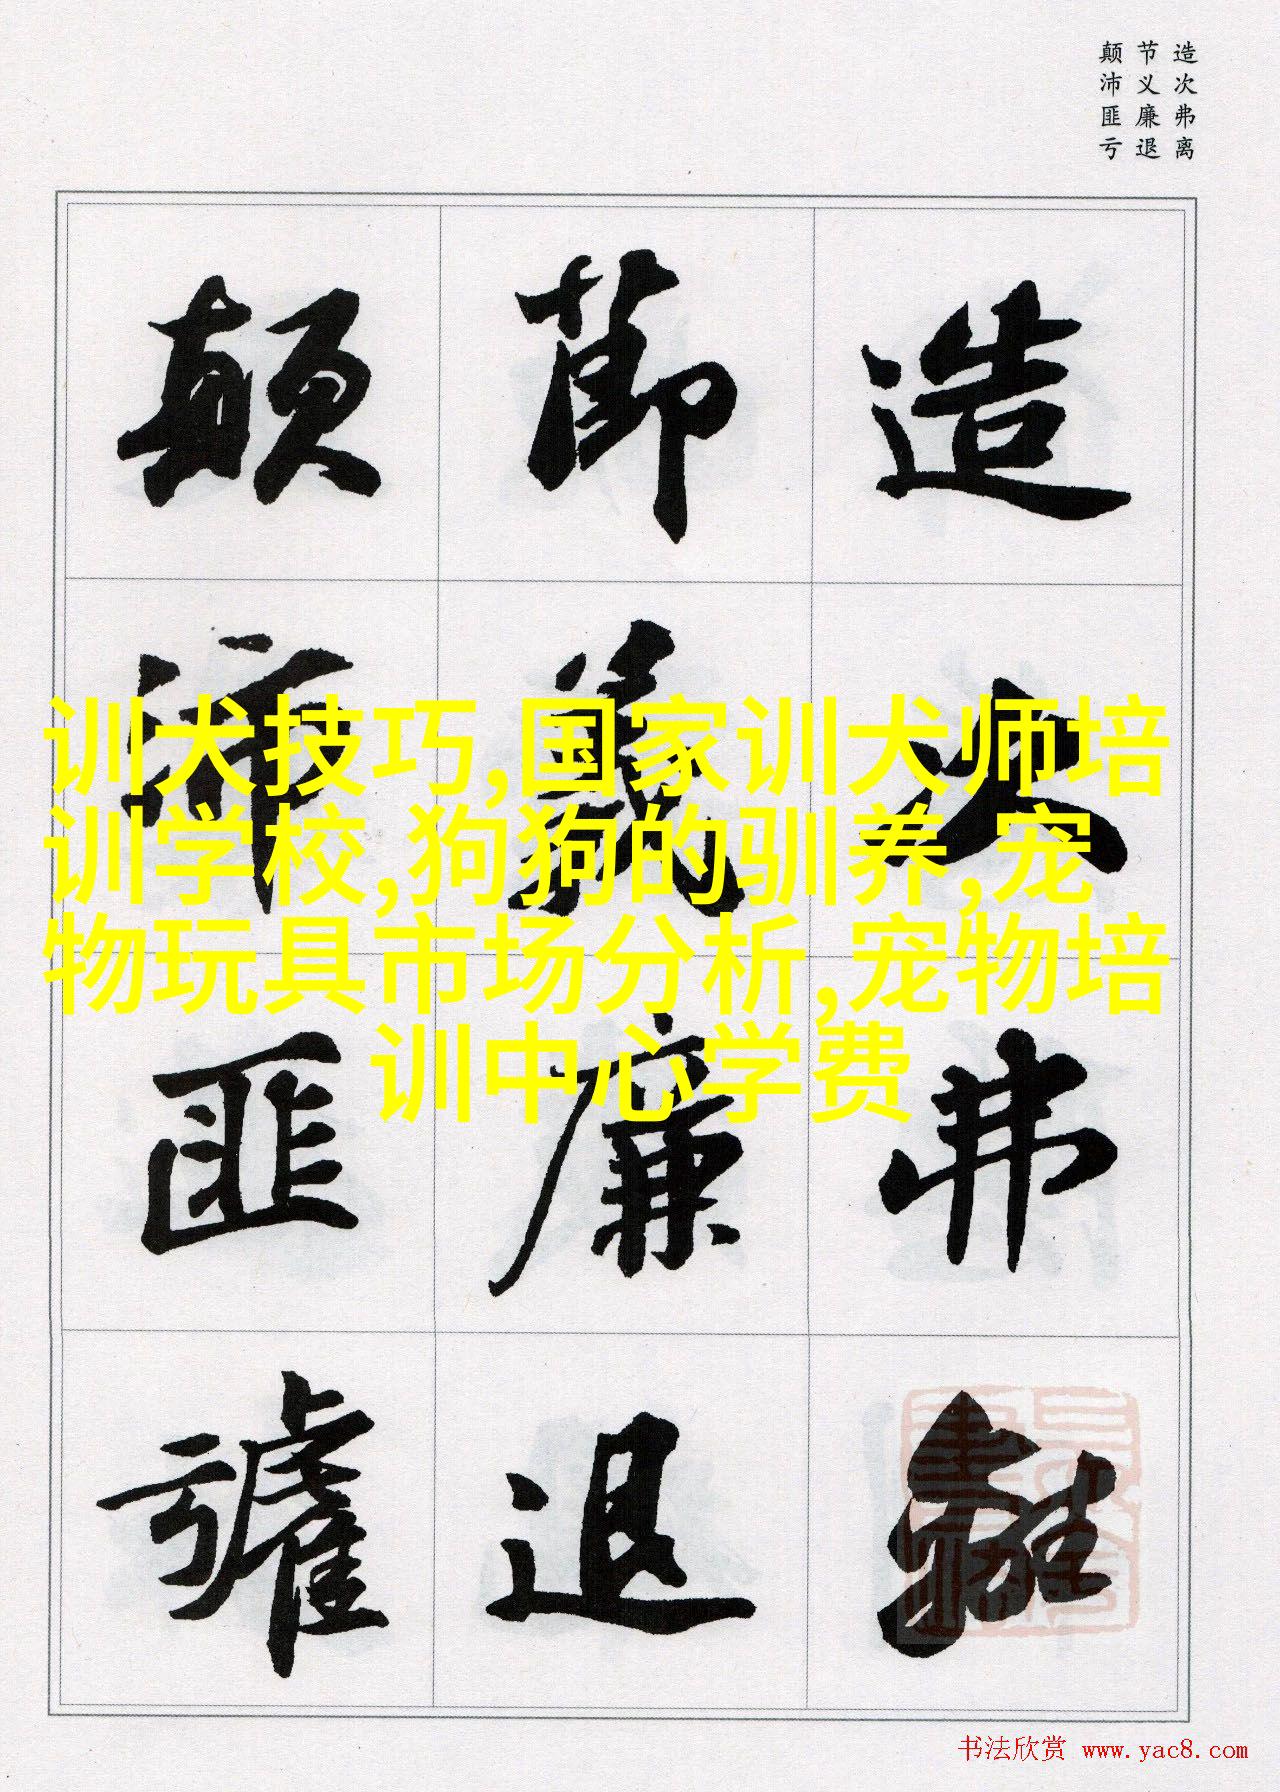 造次弗离
节义廉退
颠沛匪亏
造次弗離
節義廉退
顛沛匪虧
训犬技巧,国家训犬师培
训学校,狗狗的驯养,宠
物玩具市场分析,宠物培
训中心学费
书法欣赏 www.yac8.com